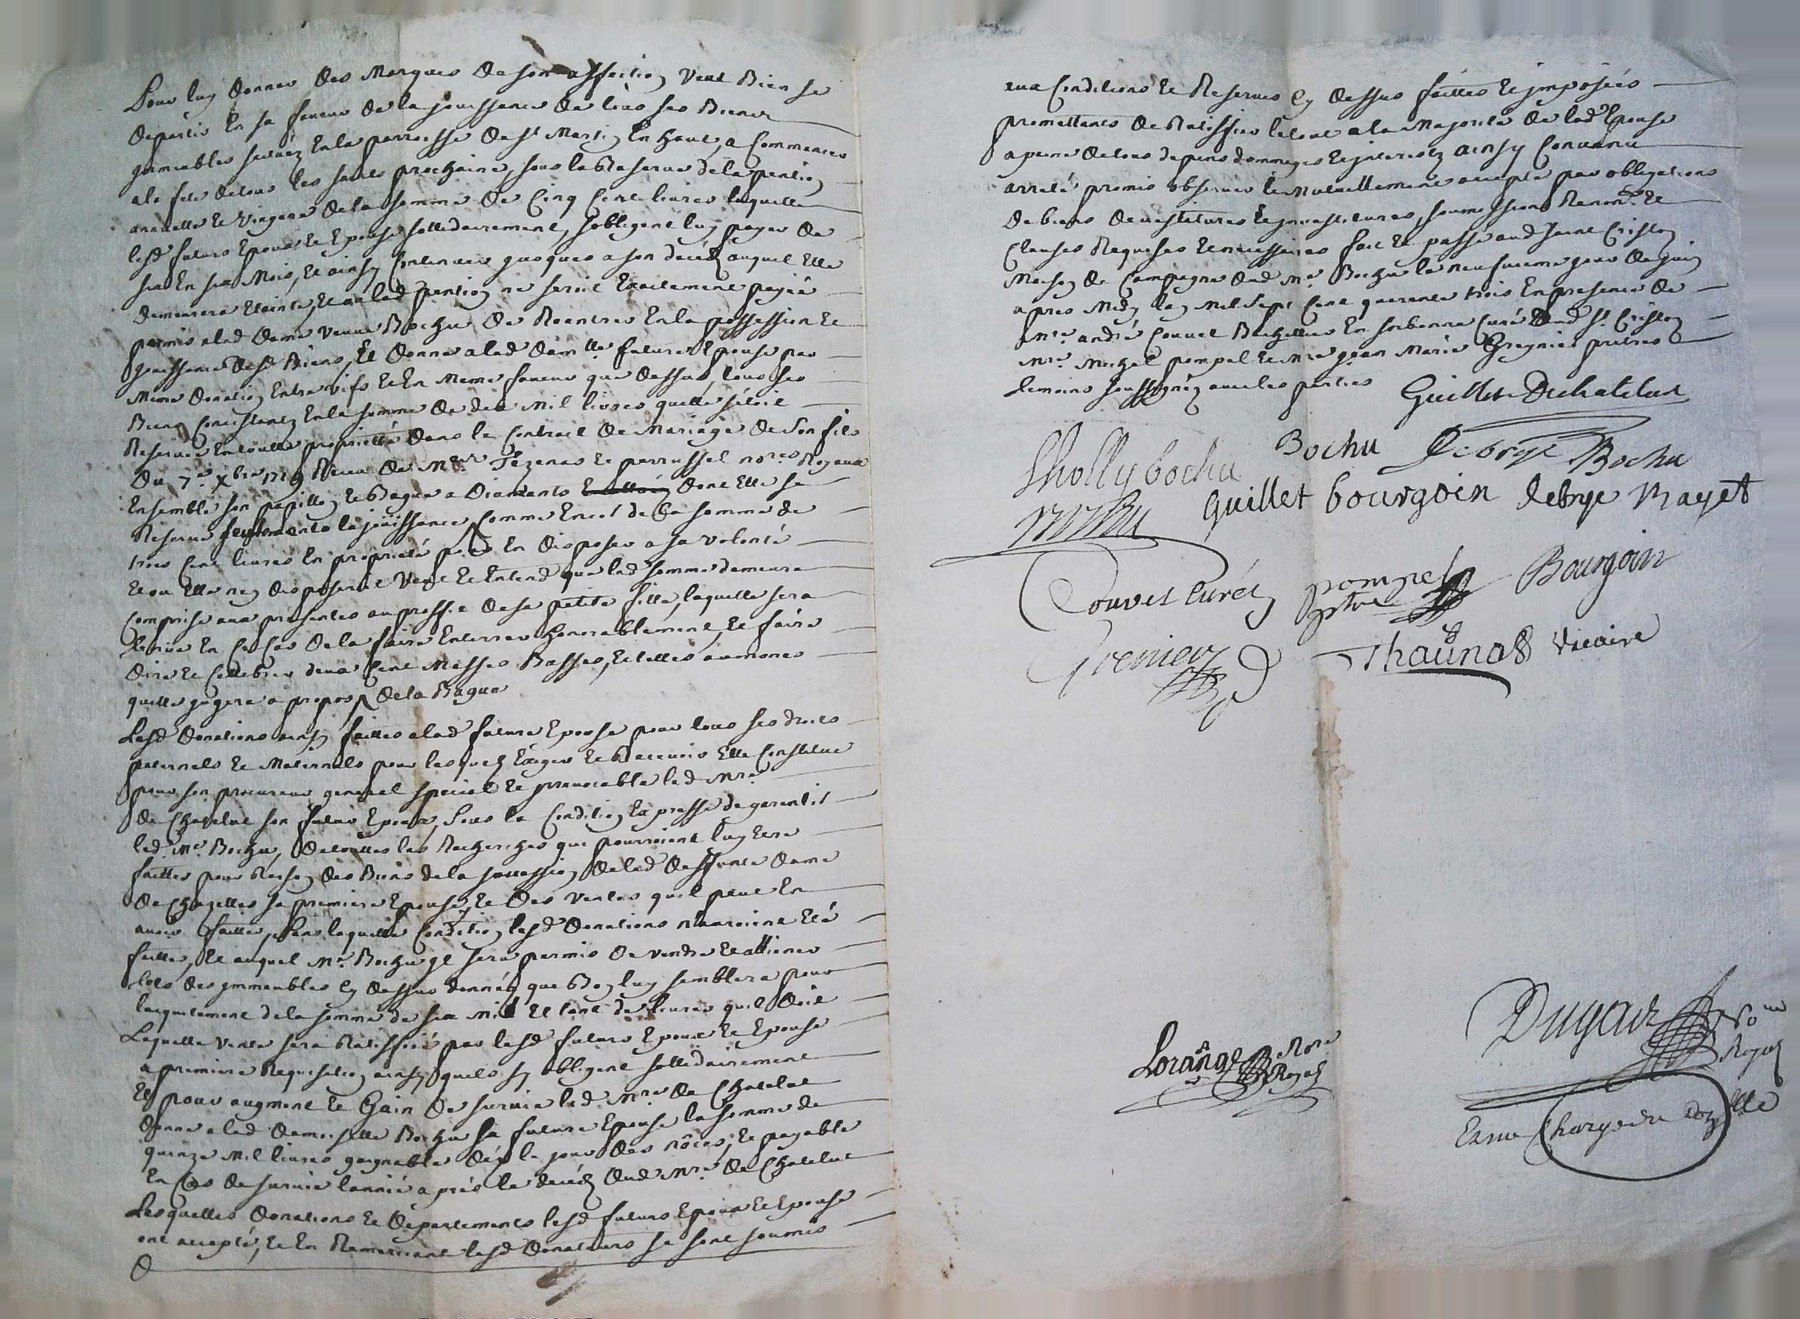 Pour luy donner des Marques de son affection Veut Bien se
departir En sa faveur de la jouissance de tous ses Biens
immeubles scituez En la parroisse de St Martin En haut, a Commencer
a la fete de tous les saints prochaine, sous la Reserve de la pention
annuelle et Viagere de la somme de Cinq Cent livres laquelle
lesd futurs Epoux et Epouse sollidairement, s'obligent luy payer de
six En six Mois, et ainsy Continuer jusques a son decéz auquel Elle
demeurera Eteinte, et ou lad pention ne seroit Exactement payée
permis a lad dame veuve Bochu de Rentrer En la possession et
jouissance desd Biens, Et donne a lad damlle future Epouse par
Meme donation Entre vifs et En Meme faveur que dessus, tous ses
Biens Consistantz En la somme de dix Mil livres quelle s'étoit
Reservée En toutte proprietté dans le Contrait de Mariage de Son fils
Du 7e xbre 1719 Receu de Mes Tezenas et perrussel nores Royaux
Ensemble son papillon et Bague a Diamants dont Elle se
Reserve seulement la jouissance, Comme En cel de la somme de
trois Cent livres En proprieté pour En disposer a sa volonté
Et ou Elle n'en disposeroit Veut et Entend que lad somme demeure
Comprise aux presentes au proffit de sa petite fille, laquelle sera
tenue En ce Cas de la faire Enterrer honorablement, et faire
Dire et Cellebrer deux Cent Messes Basses, et telles aumones
quelle jugera a propos de la Bague
Lesd Donations ainsy faittes a lad future Epouse pour tous ses droits
paternels et Maternels pour lesquels Exiger et Recevoir Elle Constitue
pour son procureur general special et jrrevocable led Mre
de Chatelut son futur Epoux, sous la Condition Expresse de garentir
led Mr Bochu, de touttes les Recherches qui pourroient luy Etre
faittes pour Raison des Biens de la succession de lad deffunte dame
de Chazelles sa premiere Epouse, et des Ventes quil peut En
avoir faittes, sans laquelle Condition lesd donations n'auroient Eté
faittes, Et auquel Mr Bochu jl sera permis de vendre et alliener
tels des jmmeubles cy dessus donnés que Bon luy semblera pour
lacquitement de la somme de six Mil Et tant de livres quil doit
Laquelle vente sera Ratiffiée par lesd futurs Epoux et Epouse
a premiere Requisition ainsy quels sy obligent sollidairement
Et pour augment et Gain de survie led Mre de Chatelut
donne a lad damoiselle Bochu sa future Epouse la somme de
quinze Mil livres gagnable dez le jour des nôces, et payable
En Cas de survie l'année après le decéz dud Mre de Chatelut
Lesquelles donations et departements lesd futurs Epoux et Epouse
ont accepté, et En Remerciant lesd donateurs se sont soumis
aux Conditions et Reserves cy dessus faittes et jmposées
promettants de Ratiffier le tout a la Majorité de lad Epouse
a peine de tous depens dommages et jnterests ainsy Convenu
arreté promis observer et Mutuellement accepté par obligations
de biens devestitures et jnvestitures, soumissions Renons. et
Clauses Requises et necessaires fait et passé aud Saint Cristo
Maison de Campagne dud Mr Bochu le neufvieme jour de juin
apres Midy l'an Mil Sept Cent quarente trois En presence de
Mre andré Couvet Bachellier En sorbonne Curé dud St Cristo
Mre Michel pompel et Mre jean Marie Grenier pretres
temoins soussignéz avec les parties
Guillet Duchatelut
Sholly bochu Bochu Debrye Bochu
guillet bourgoin debrye Mayet
Couvet Curéz pompel ptre Bourgoin
Grenier Thaünas vicaire
Dugaix Nore Royal
Lorange Nore Royal